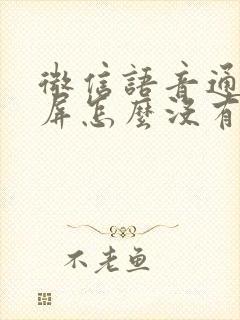 微信語音通
屏怎麼沒有
不老魚